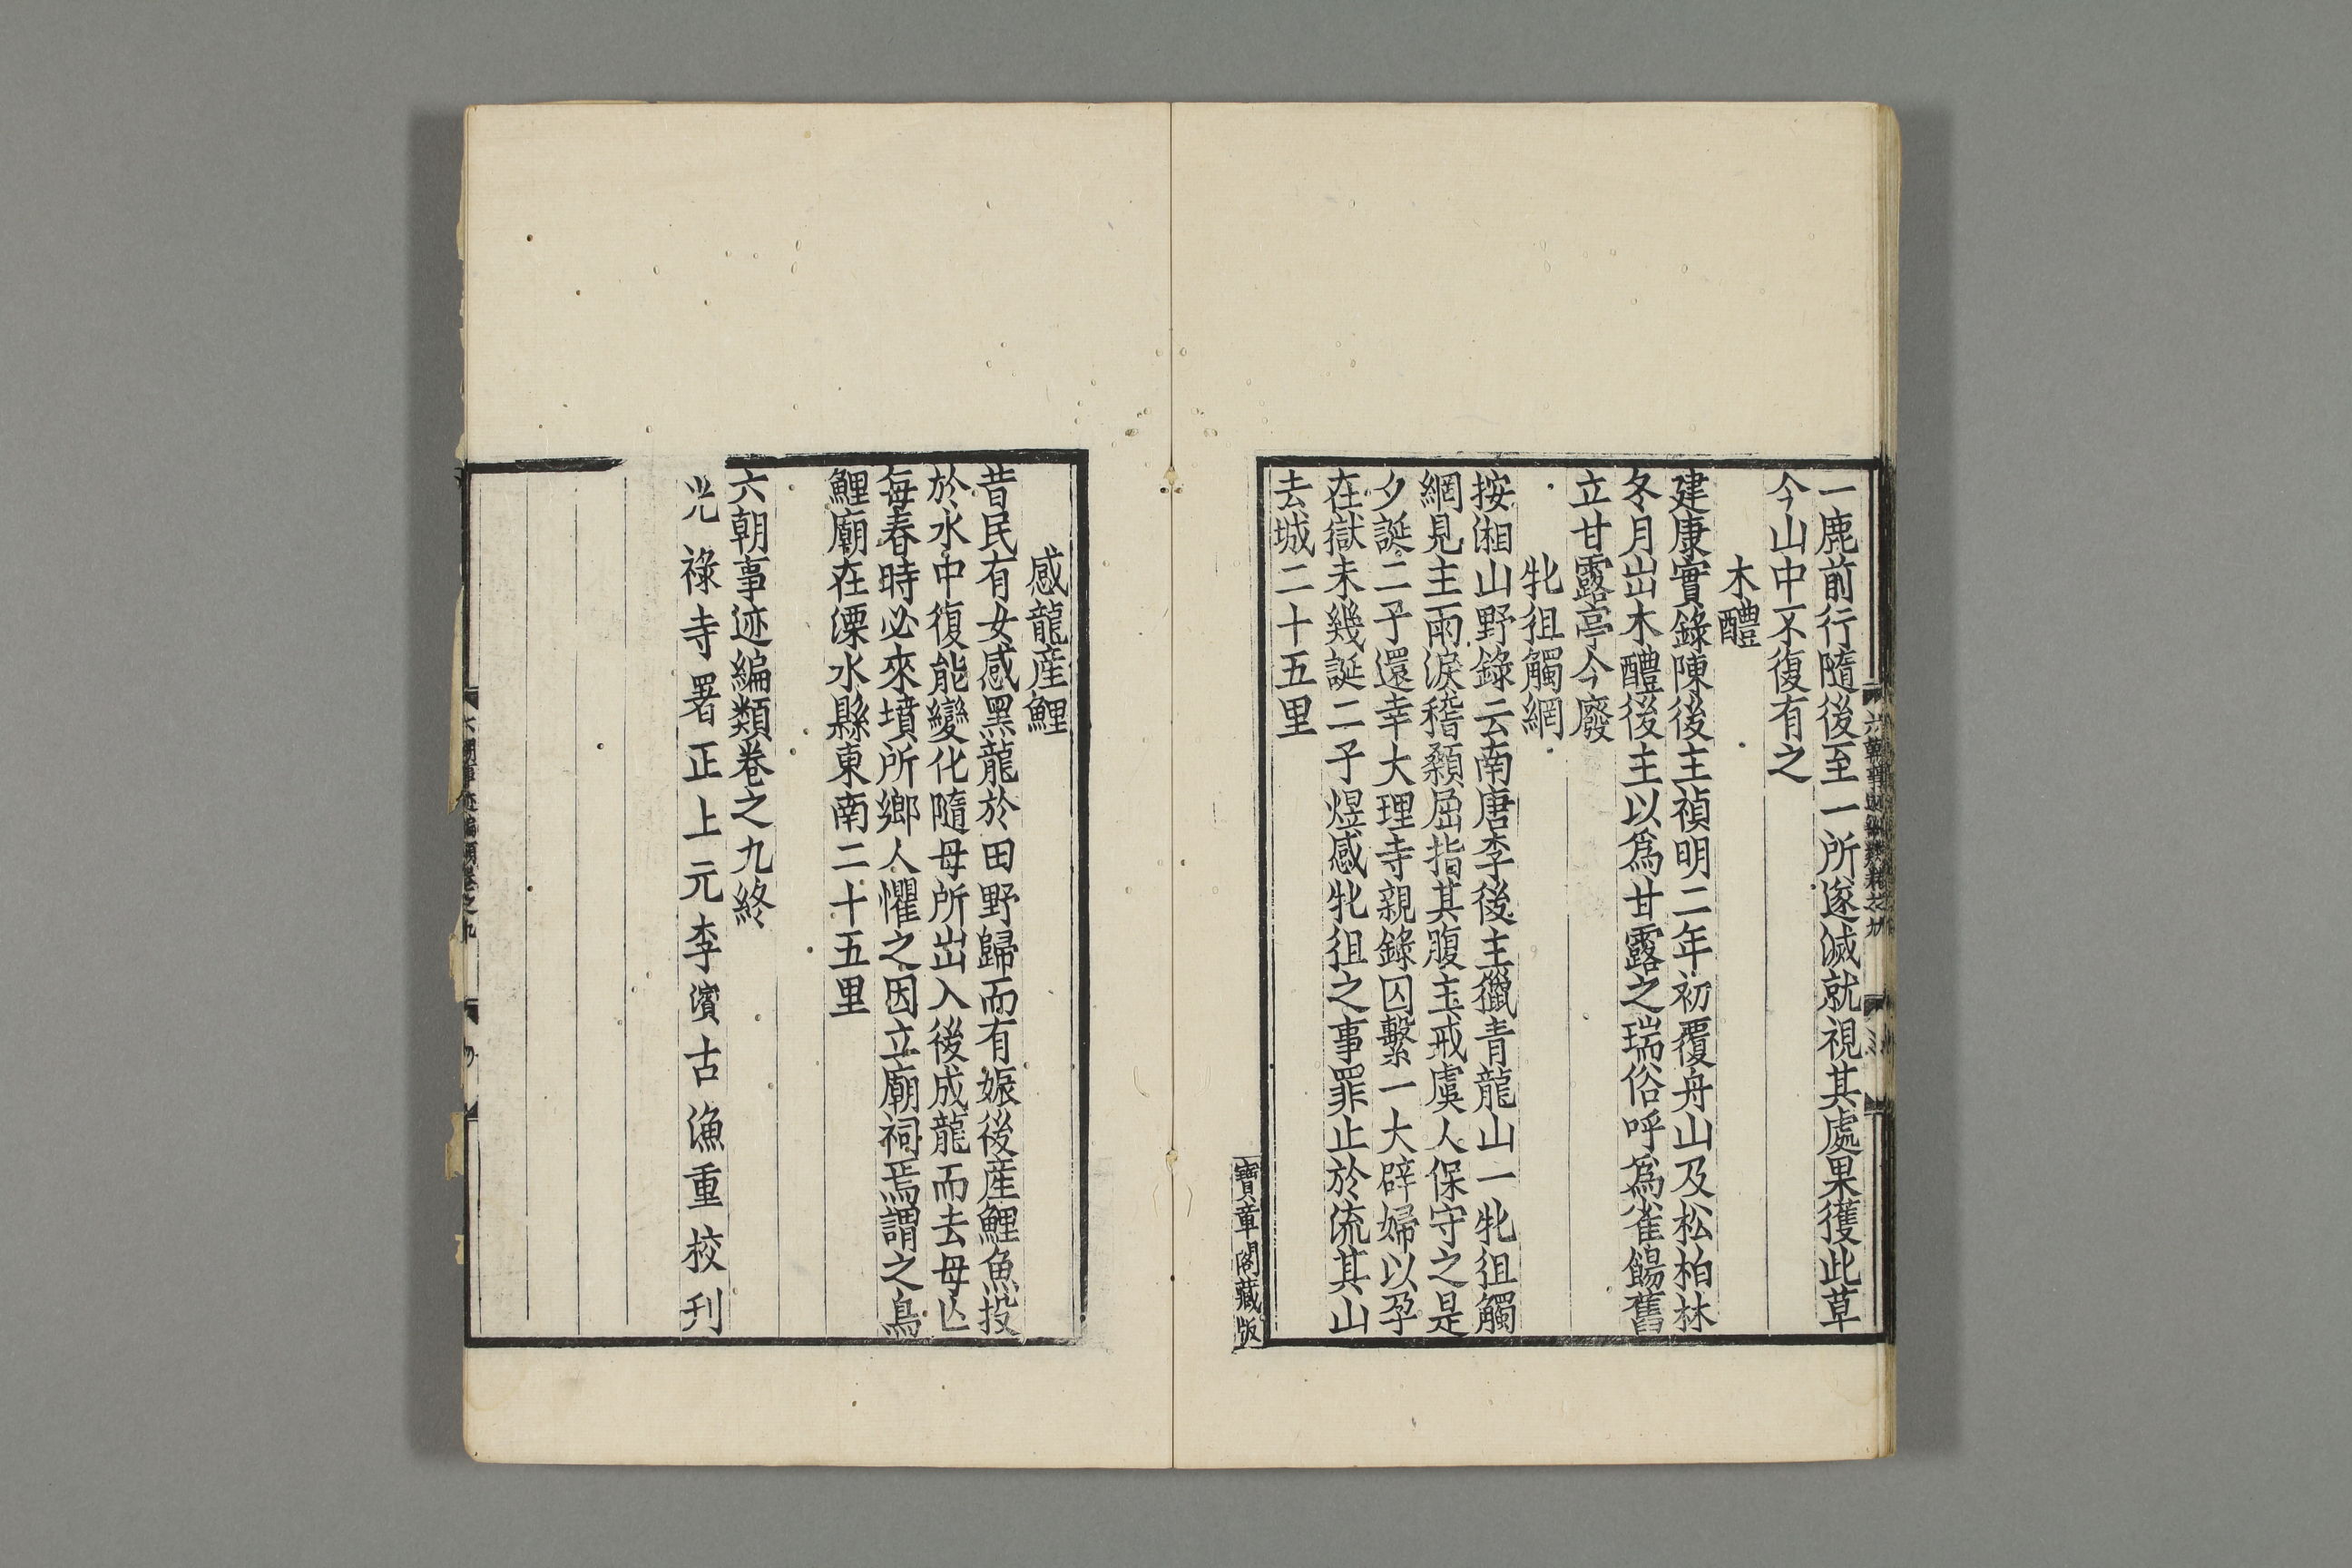 一鹿前行隨後至一所遂滅就視其處果獲此草
今山中不復有之
木醴
建康實錄陳後主禎明二年初覆舟山及松柏林
冬月出木醴後主以爲甘露之瑞俗呼爲雀餳舊
立甘露亭今廢
牝狙觸網
按湘山野錄云南唐李後主獵青龍山一牝狙觸
網見主雨淚稽顙屈指其腹主戒虞人保守之是
夕誕二子還幸大理寺親錄囚繫一大辟婦以孕
在獄未幾誕二子煜感牝狙之事罪止於流其山
去城二十五里
寶章閣藏版
感龍産鯉
昔民有女感黑龍於田野歸而有娠後産鯉魚投
於水中復能變化隨母所出入後成龍而去母亡
每春時必來墳所鄉人懼之因立廟祠焉謂之鳥
鯉廟在溧水縣東南二十五里
六朝事迹編類卷之九終
光祿寺署正上元李濱古漁重校刊
六朝事迹編類卷之九